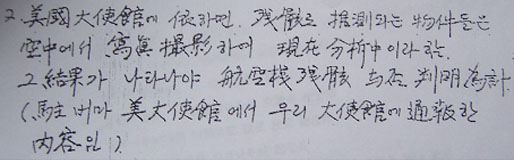 2. 美國大使館에 依하면, 残骸로 推測되는 物件들은
空中에서 寫眞撮影하여 現在 分析中이라 함.
그 結果가 나타나야 航空機 残骸 与否 判明 為計
(駐 버마 美大使館에서 우리 大使館에 通報한
内容임).